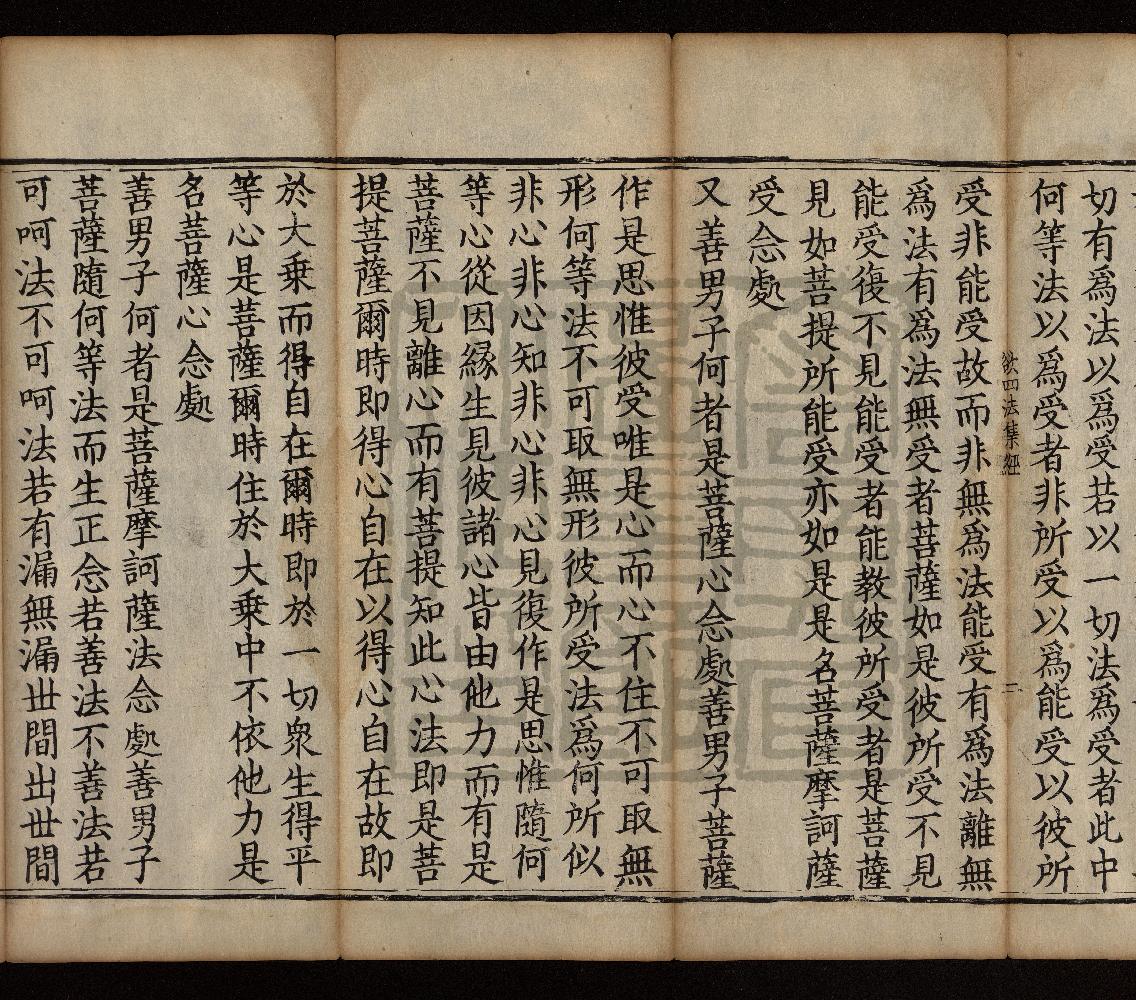 切有爲法以爲受若以一切法爲受者此中
何等法以爲受者非所受以爲能受以彼所
欲四法集經 二
受非能受故而非無爲法能受有爲法離無
爲法有爲法無受者菩薩如是彼所受不見
能受復不見能受者能教彼所受者是菩薩
見如菩提所能受亦如是是名菩薩摩訶薩
受念處
又善男子何者是菩薩心念處善男子菩薩
作是思惟彼受唯是心而心不住不可取無
形何等法不可取無形彼所受法爲何所似
非心非心知非心非心見復作是思惟隨何
等心從因緣生見彼諸心皆由他力而有是
菩薩不見離心而有菩提知此心法即是菩
提菩薩爾時即得心自在以得心自在故即
於大乘而得自在爾時即於一切衆生得平
等心是菩薩爾時住於大乘中不依他力是
名菩薩心念處
善男子何者是菩薩摩訶薩法念處善男子
菩薩隨何等法而生正念若善法不善法若
可呵法不可呵法若有漏無漏世間出世間